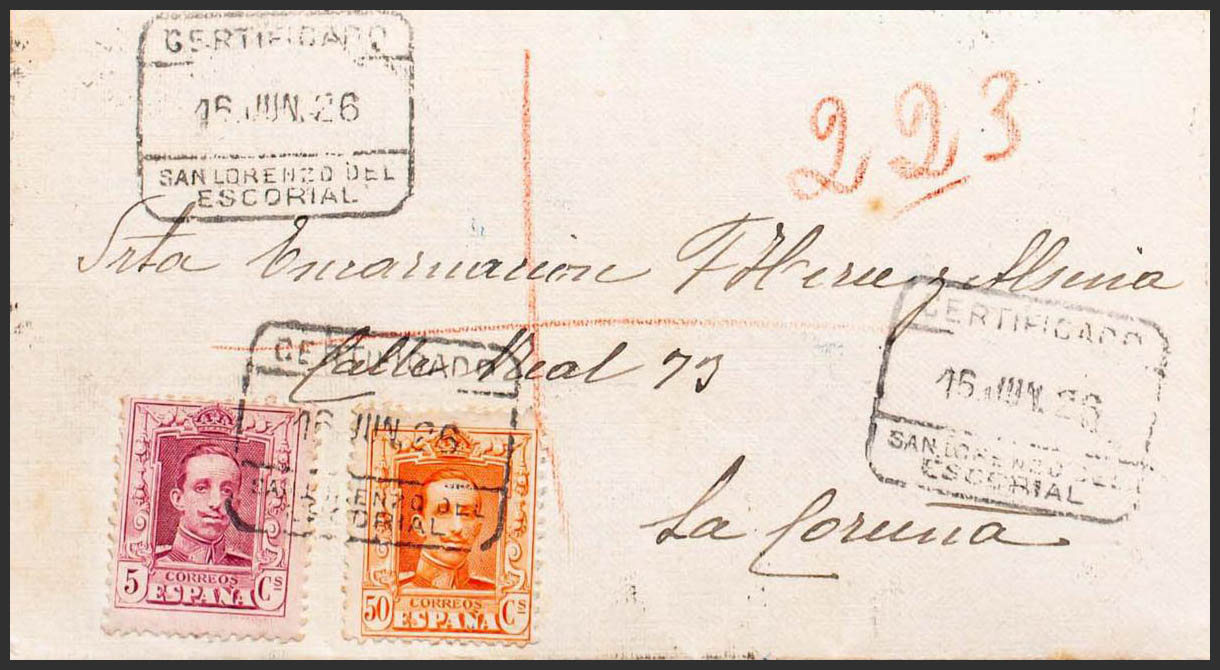 CERTIFICADO
16.JUN.26
SAN LORENZO DEL
ESCORIAL
223
Srta Encarnacion
Calle Real 73
La Coruña
CERTIFICADO
16.JUN.26
SAN LORENZO DEL
ESCORIAL
CERTIFICADO
16.JUN.26
SAN LORENZO DEL
ESCORIAL
5 CORREOS Cs
ESPAÑA
50 CORREOS Cs
ESPAÑA